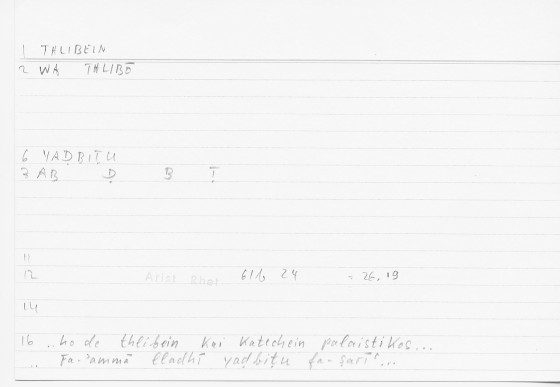 1 THLIBEIN
2 WK THLIBŌ
6 YAḌBIṬU
7 AB Ḍ B Ṭ
11
12 Arist Rhet 61b 24 = 26,19
14
16 ..ho de thlibein kai katechein palaistikos...
.. Fa-'ammā lladhī yaḍbiṭu fa-ṣarīʿ...